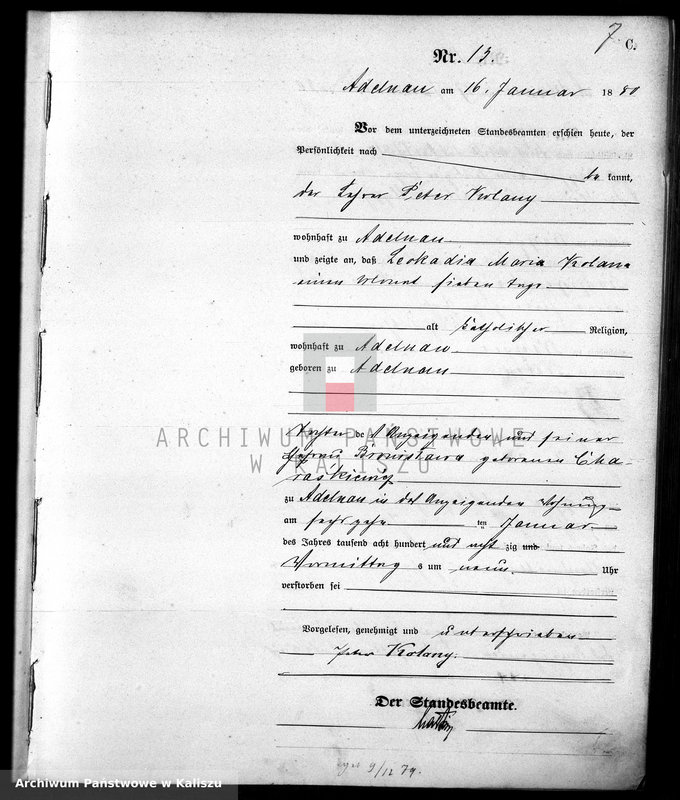 7
C.
Nr. 13.
Adelnau am 16. Januar 1880
Vor dem unterzeichneten Standesbeamten erschien heute, der
Persönlichkeit nach
bekannt,
der Lehrer Peter Kolany
wohnhaft zu Adelnau
und zeigte an, daß Leokadia Maria Kolany
einen Monat sieben Tage
alt katholischer Religion,
wohnhaft zu Adelnau
geboren zu Adelnau
ARCHIWUM PAŃSTWOWE
W KALISZU
Tochter des Anzeigenden und seiner
Ehefrau Bronislawa geborenen
zu Adelnau in des Anzeigenden Wohnung
am sechszehnten Januar
des Jahres tausend acht hundert und achtzig und
Vormittags um neun Uhr
verstorben sei
Vorgelesen, genehmigt und unterschrieben
Peter Kolany.
Der Standesbeamte.
9/12 79.
Archiwum Państwowe w Kaliszu